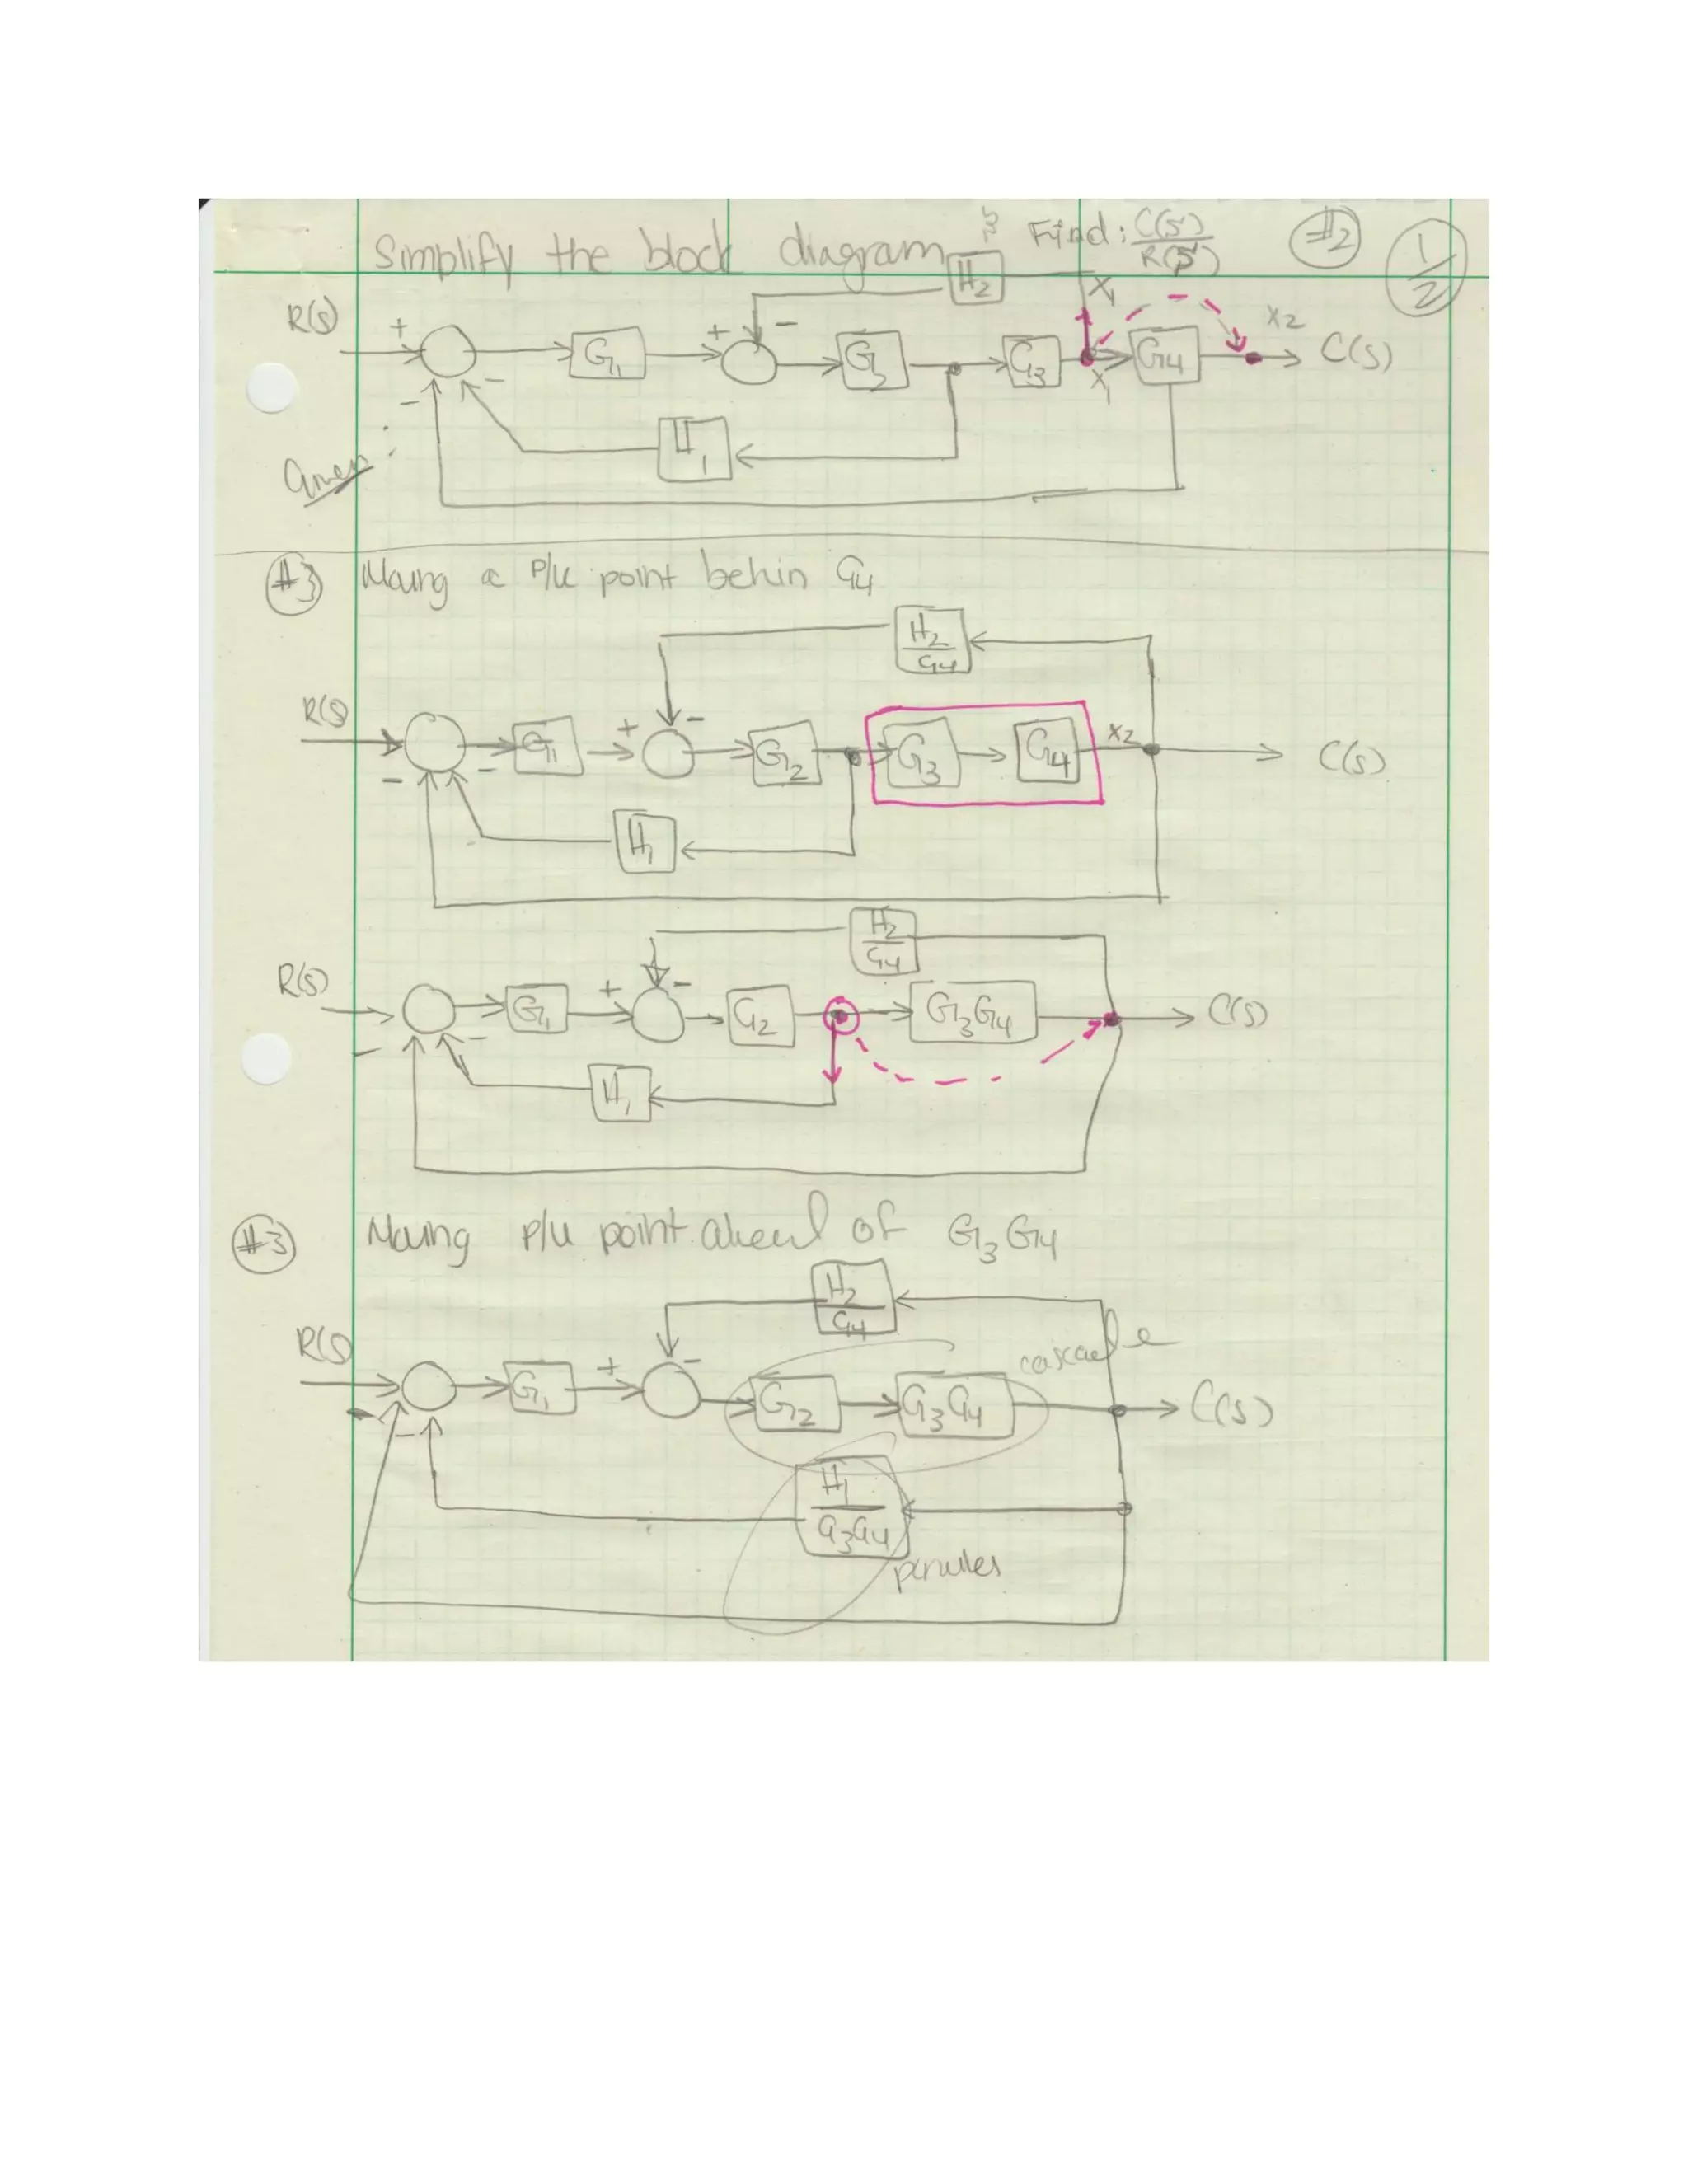 Simplify the block diagram Find: C(s)/R(s) #2 1/2
H2 X1
R(s) + G1 + - G2 G3 X1 G4 X2 C(s)
- -
H1
Given:
#3 Moving a P/U point behin G4
H2/G4
R(s) G1 + - G2 G3 G4 X2 C(s)
- -
H1
H2/G4
R(s) G1 + - G2 G3G4 C(s)
- -
H1
#3 Moving P/U point ahead of G3G4
H2/G4
R(s) G1 + - G2 G3G4 cascade C(s)
- -
H1/G3G4